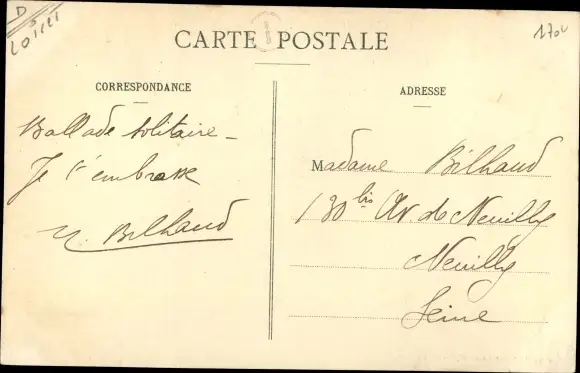 D
LOIRET
170v
CARTE POSTALE
CORRESPONDANCE
Ballade solitaire –
Je t'embrasse
Bilhaud
ADRESSE
Madame Bilhaud
130 bis Av. de Neuilly
Neuilly
Seine